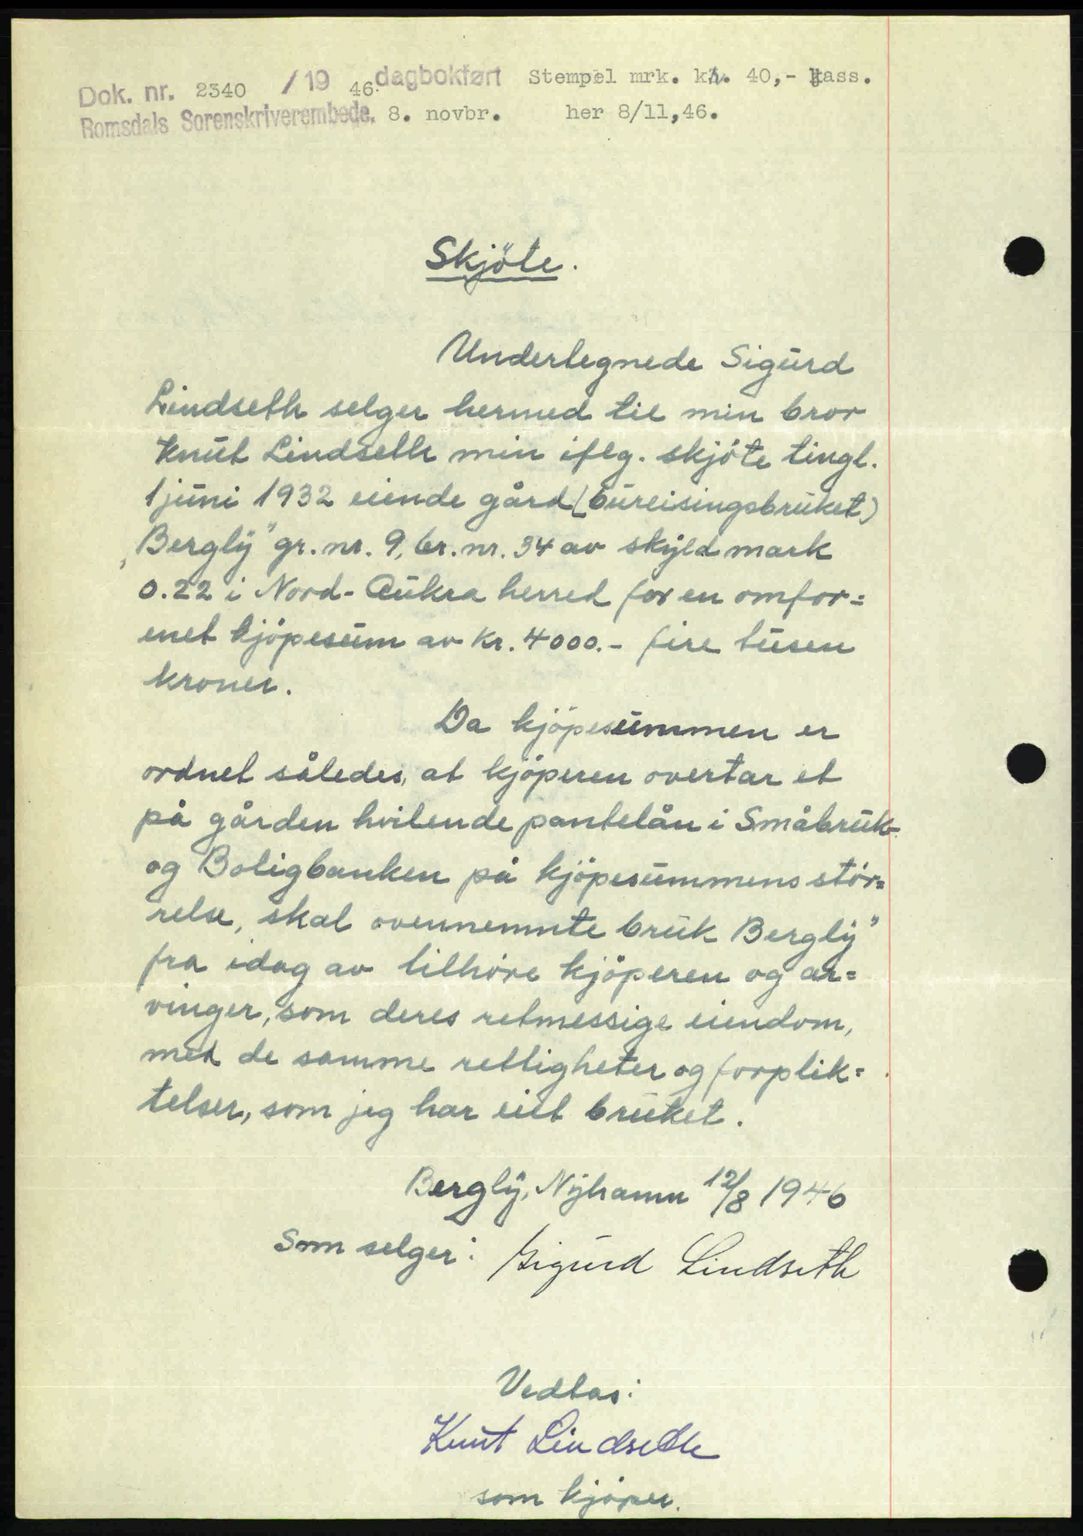 Dok. nr. 2340 /19 46. dagbokført Stempel mrk. kr. 40,- kass.
Romsdals Sorenskriverembede. 8. novbr. her 8/11,46.
Skjöte.
Underlegnede Sigurd
Lindseth selger hermed til min bror
Knut Lindseth min iflg. skjöte tingl.
1 juni 1932 eiende gård (bureisingsbruket)
„Bergly" gr. nr. 9, br. nr. 34 av skyld mark
0.22 i Nord-Aukra herred for en omfor=
enet kjöpesum av kr. 4000.- fire tusen
kroner.
Da kjöpesummen er
ordnet således, at kjöperen overtar et
på gården hvilende pantelån i Småbruk-
og Boligbanken på kjöpesummens stör=
relse, skal ovennemnte bruk Bergly"
fra idag av tilhöre kjöperen og ar=
vinger, som deres retmessige eiendom,
med de samme rettigheter og forplik=
telser, som jeg har eiet bruket.
Bergly, Nyhamn 12/8 1946
Som selger: Sigurd Lindseth
Vedtas:
Knut Lindseth
som kjöper.